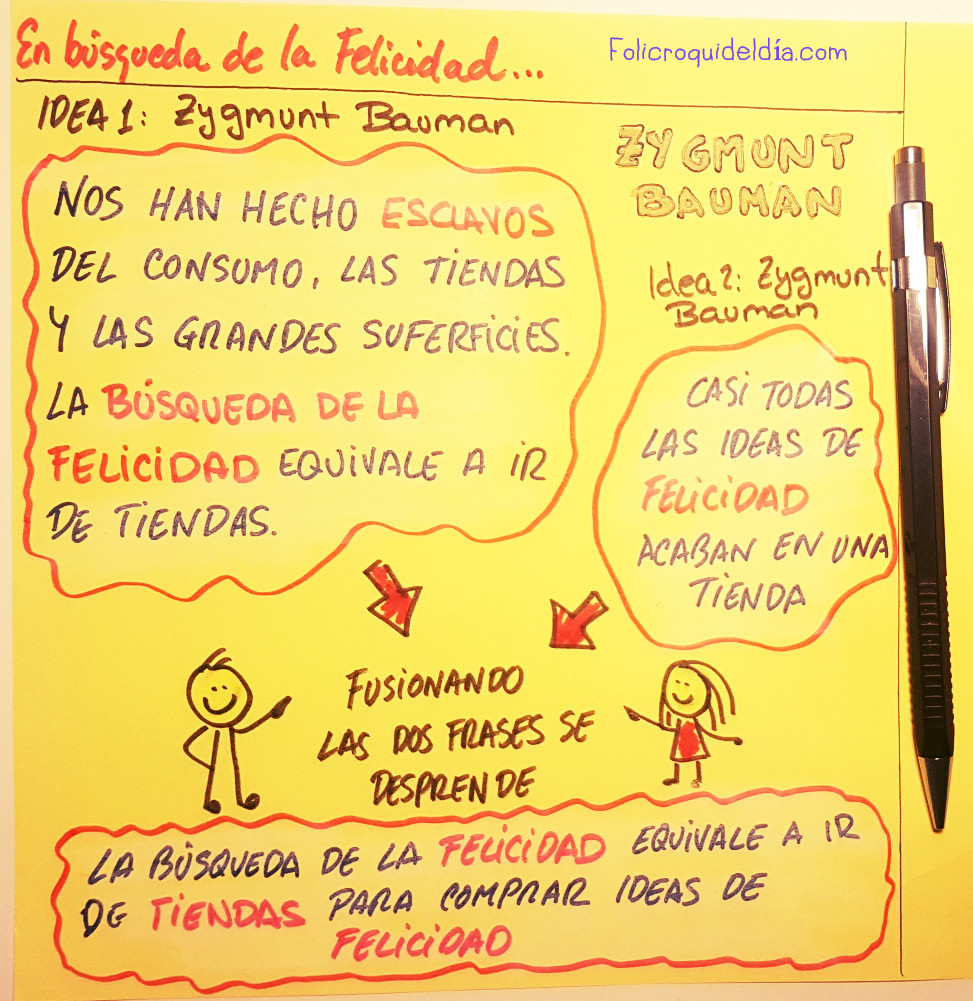 En búsqueda de la Felicidad...
Folicroquideldía.com
IDEA 1: Zygmunt Bauman
NOS HAN HECHO ESCLAVOS
DEL CONSUMO, LAS TIENDAS
Y LAS GRANDES SUFERFICIES.
LA BÚSQUEDA DE LA
FELICIDAD EQUIVALE A IR
DE TIENDAS.
ZYGMUNT
BAUMAN
Idea 2: Zygmunt
Bauman
CASI TODAS
LAS IDEAS DE
FELICIDAD
ACABAN EN UNA
TIENDA
FUSIONANDO
LAS DOS FRASES SE
DESPRENDE
LA BÚSQUEDA DE LA FELICIDAD EQUIVALE A IR
DE TIENDAS PARA COMPRAR IDEAS DE
FELICIDAD